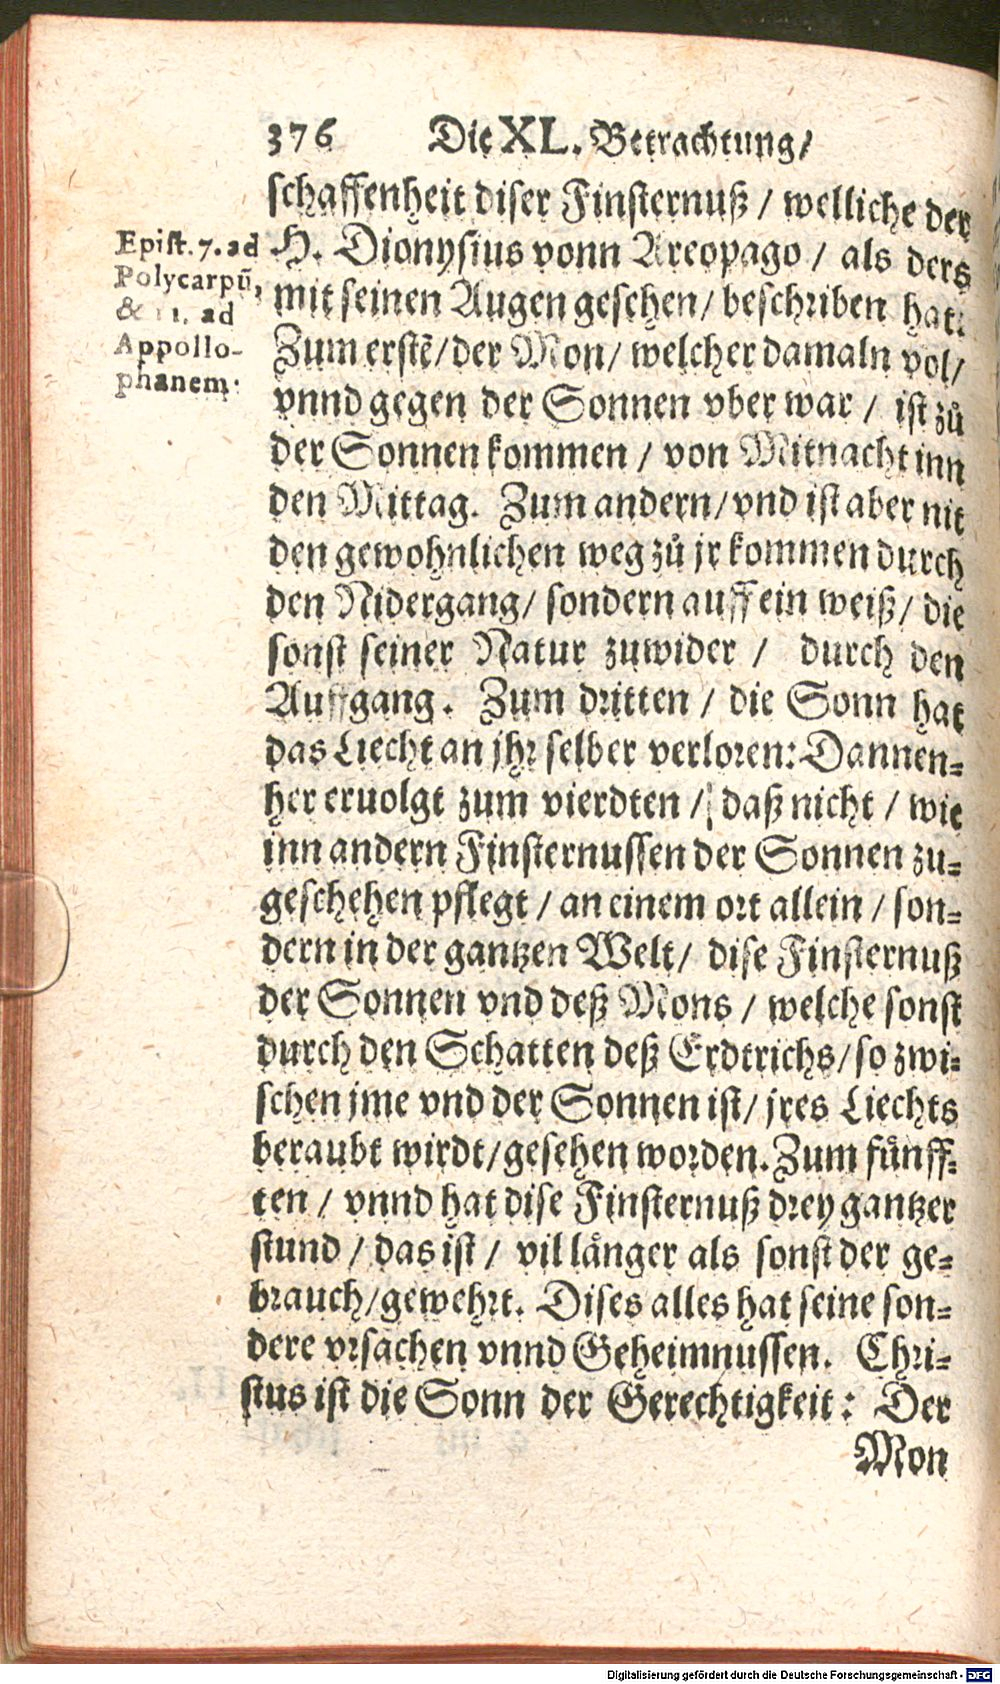 376 Die XL. Betrachtung/
schaffenheit diser Finsternuß / welliche der
H. Dionysius vonn Areopago / als ders
mit seinen Augen gesehen/ beschriben hat:
Zum erstē/ der Mon/ welcher damaln vol/
vnnd gegen der Sonnen vber war / ist zů
der Sonnen kommen / von Mitnacht inn
den Mittag. Zum andern/ vnd ist aber nit
den gewohnlichen weg zů jr kommen durch
den Nidergang/ sondern auff ein weiß/ die
sonst seiner Natur zuwider / durch den
Auffgang. Zum dritten / die Sonn hat
das Liecht an jhr selber verloren: Dannen-
her eruolgt zum vierdten / daß nicht / wie
inn andern Finsternussen der Sonnen zu-
geschehen pflegt / an einem ort allein / son-
dern in der gantzen Welt/ dise Finsternuß
der Sonnen vnd deß Mons / welche sonst
durch den Schatten deß Erdtrichs/ so zwi-
schen jme vnd der Sonnen ist/ jres Liechts
beraubt wirdt/ gesehen worden. Zum fůnff-
ten / vnnd hat dise Finsternuß drey gantzer
stund / das ist / vil långer als sonst der ge-
brauch/ gewehrt. Dises alles hat seine son-
dere vrsachen vnnd Geheimnussen. Chri-
stus ist die Sonn der Gerechtigkeit: Der
Mon
Epist. 7. ad
Polycarpū,
& 11. ad
Appollo-
phanem:
Digitalisierung gefördert durch die Deutsche Forschungsgemeinschaft - DFG